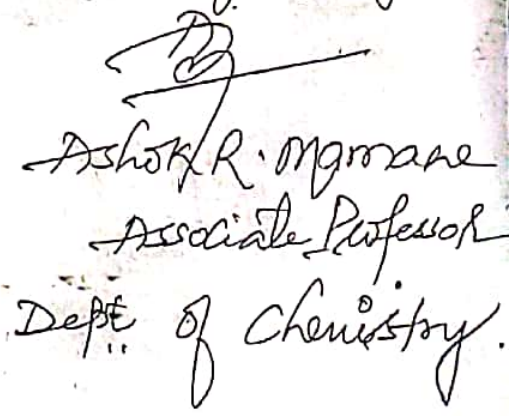 Ashok R. Mamane
Associate Professor
Dept. of Chemistry.